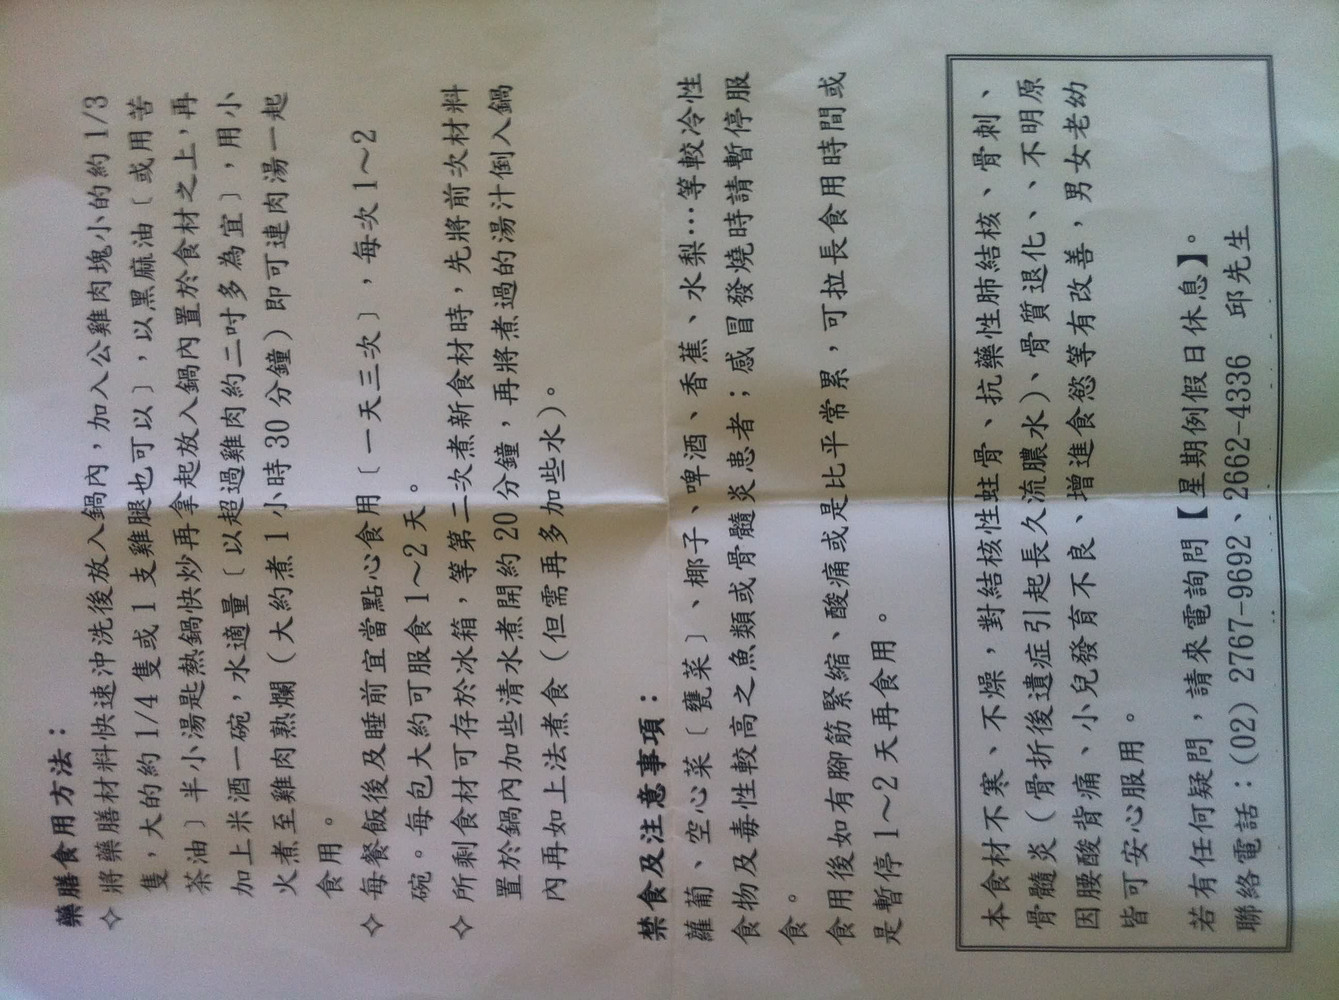 藥膳食用方法：
✧ 將藥膳材料快速沖洗後放入鍋內，加入公雞肉塊小的約 1/3
隻，大的約 1/4 隻或 1 支雞腿也可以﹞，以黑麻油﹝或用苦
茶油﹞半小湯匙熱鍋快炒再拿起放入鍋內置於食材之上，再
加上米酒一碗，水適量﹝以超過雞肉約二吋多為宜﹞，用小
火煮至雞肉熟爛（大約煮 1 小時 30 分鐘）即可連肉湯一起
食用。
✧ 每餐飯後及睡前宜當點心食用﹝一天三次﹞，每次 1～2
碗。每包大約可服食 1～2 天。
✧ 所剩食材可存於冰箱，等第二次煮新食材時，先將前次材料
置於鍋內加些清水煮開約 20 分鐘，再將煮過的湯汁倒入鍋
內再如上法煮食（但需再多加些水）。
禁食及注意事項：
蘿蔔、空心菜﹝甕菜﹞、椰子、啤酒、香蕉、水梨…等較冷性
食物及毒性較高之魚類或骨髓炎患者；感冒發燒時請暫停服
食。
食用後如有腳筋緊縮、酸痛或是比平常累，可拉長食用時間或
是暫停 1～2 天再食用。
本食材不寒、不燥，對結核性蛀骨、抗藥性肺結核、骨刺、
骨髓炎（骨折後遺症引起長久流膿水）、骨質退化、、不明原
因腰酸背痛、小兒發育不良、增進食慾等有改善，男女老幼
皆可安心服用。
若有任何疑問，請來電詢問【星期例假日休息】。
聯絡電話：(02) 2767-9692、2662-4336 邱先生